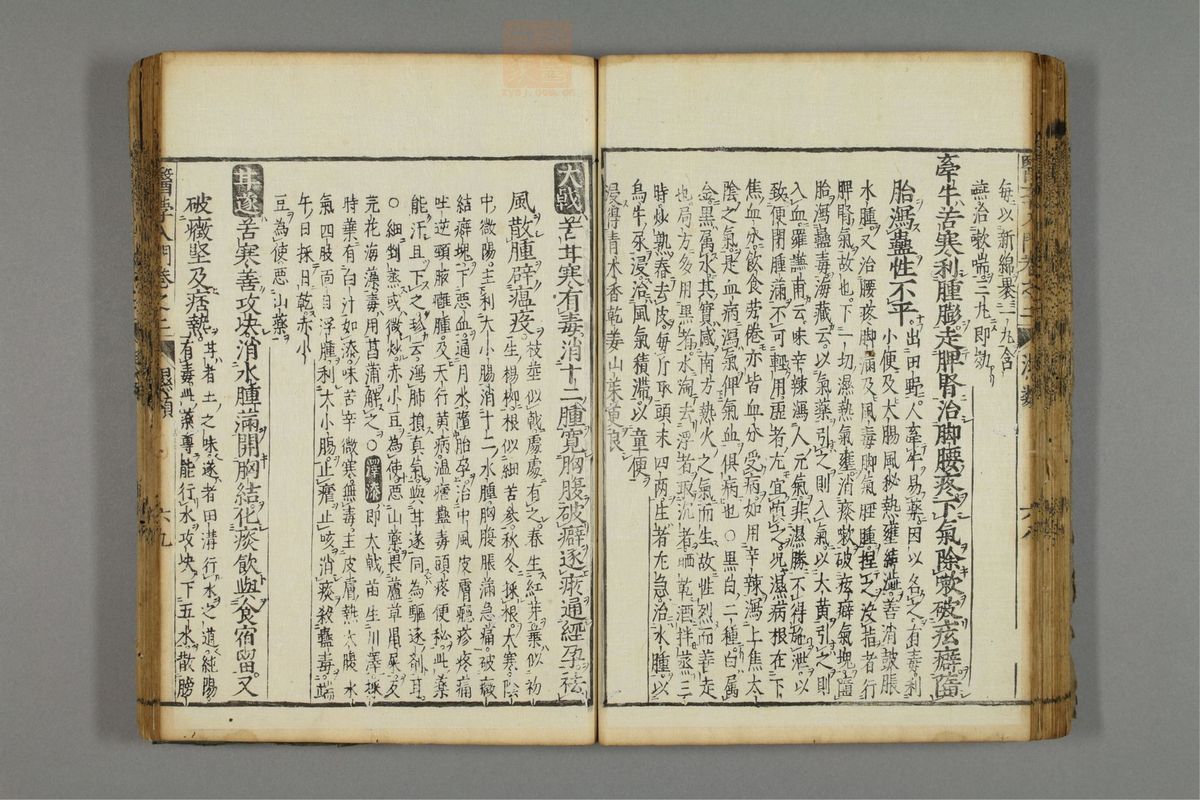 每以新綿裹三九含
牽牛苦寒利腫膨走脾腎治脚腰疼下氣除嗽破痃癖墮
胎瀉蠱性不平出田野人牽牛易藥因以名之有毒利
小便及大腸風秘熱壅結澁善消鼓脹
水腫又治腰疼脚滿及風毒脚氣脛腫捏之没指者行
脾腎氣故也下一切濕熱氣壅消痰嗽破痃癖氣塊墮
胎瀉蠱毒海藏云以氣藥引之則入氣以大黄引之則
入血羅謙甫云味辛辣瀉人元氣非濕勝不得施泄以
致便閉腫滿不可輕用虛者尤宜況濕病根在下
焦血分飲食勞倦亦皆血分受病如用辛辣瀉上焦太
陰之氣是血病瀉氣俾氣血俱病也○黒白二種白属
金黒属水其實感南方熱火之氣而生故性烈而善走
也局方多用黒者水淘去浮者取沉者晒乾酒拌蒸三
時炒熟舂去皮每斤取頭末四兩生者尤急治水腫以
烏牛尿浸治風氣積滯以童便
大戟苦甘寒有毒消十二腫寛胸腹破癖逐瘀通經孕袪
風散腫辟瘟疫枝莖似戟處處有之春生紅芽葉似初
生楊柳根似細苦參秋冬採根大寒陰
中微陽主利大小腸消十二水腫胸腹脹滿急痛破癥
結癖塊下惡血通月水墮胎孕治中風皮膚癮疹疼痛
吐逆頸腋癰腫及天行黄病温瘧蠱毒頭疼便秘此藥
能汗且下之珍云瀉肺損真氣與甘遂同為驅逐剤耳
○細剉蒸或微炒赤小豆為使惡山藥畏蘆草鼠屎反
芫花海藻毒用菖蒲解之○澤漆即大戟苗生川澤採
時葉有白汁如漆味苦辛微寒無毒主皮膚熱大腹水
氣四肢面目浮腫利大小腸止瘧止咳消痰殺蠱毒端
午日採日乾赤小
豆為使惡山藥
甘遂苦寒善攻决消水腫滿開胸結化痰飲與食宿留又
破癥堅及痞熱甘者土之味遂者田溝行水之道純陽
有毒此藥專能行水攻决下五水散膀
醫學入門卷之二
六九